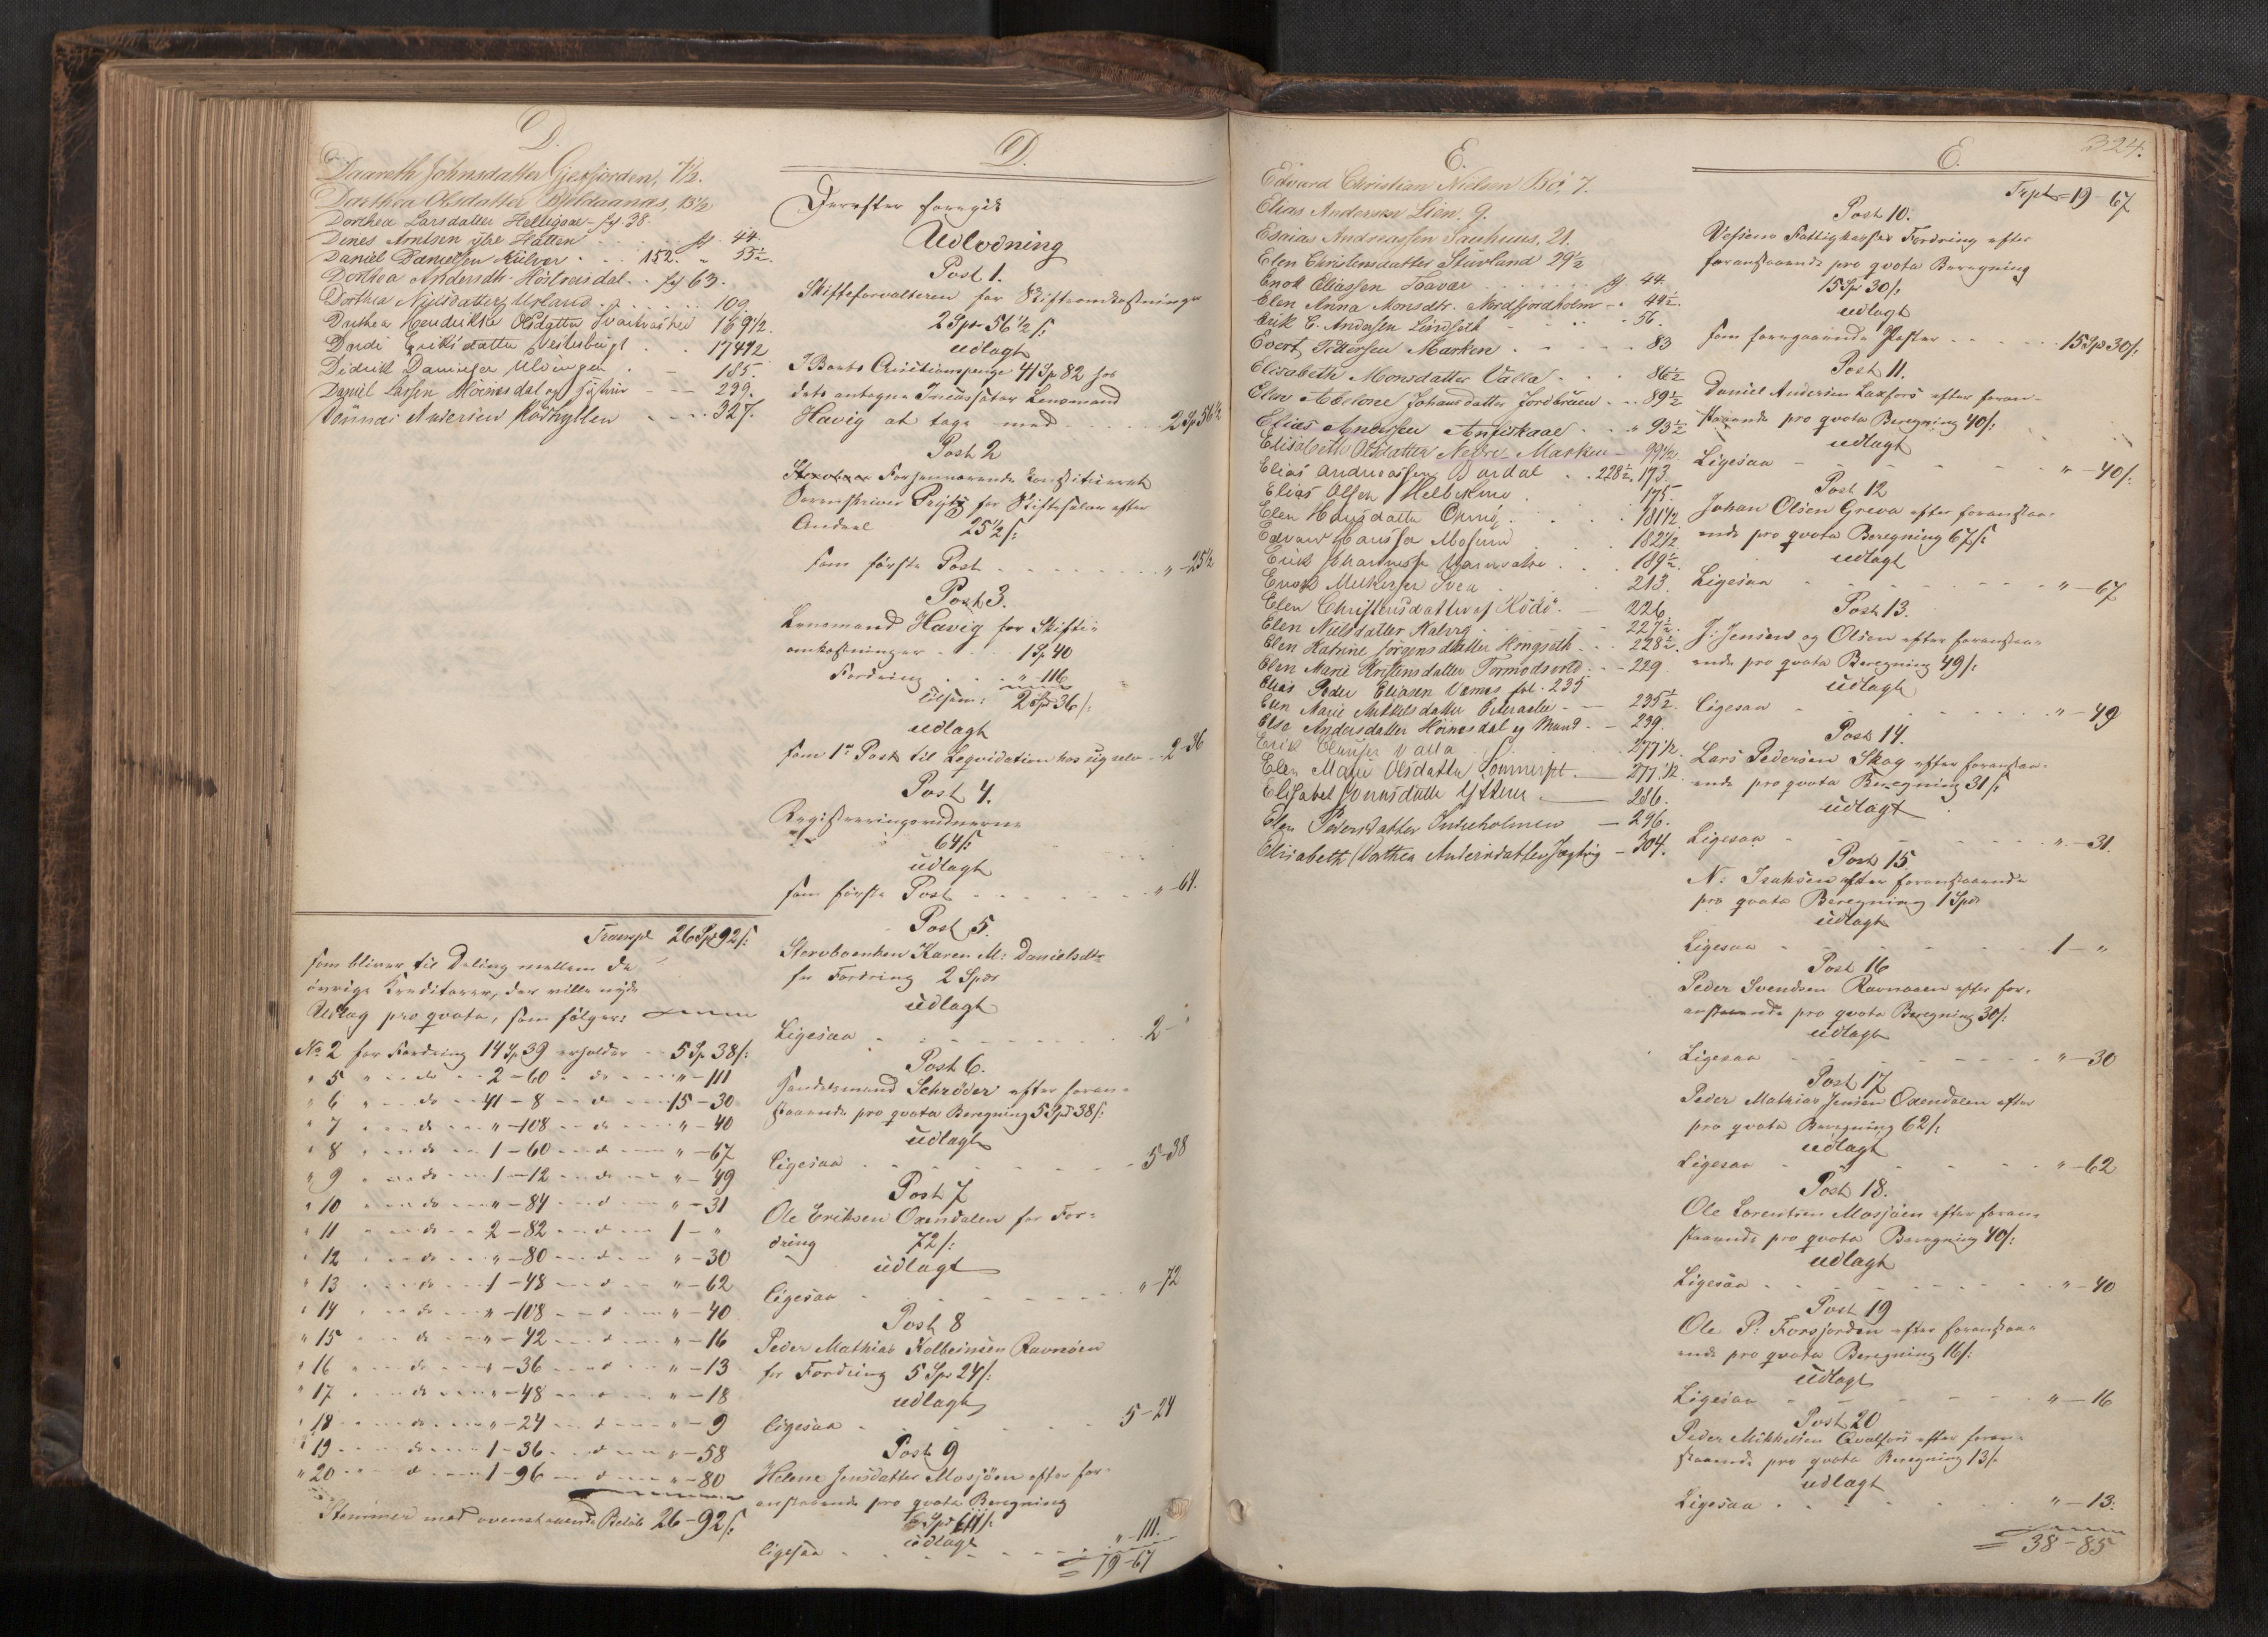 D.
Daareth Johnsdatter Gjesfjorden, 7½.
Dorthea Olsdatter Bjeldaanæs, 13½
Dorthea Larsdatter fol 38.
Dines Arntsen ytre Hatten fol. 44.
Daniel Danielsen Kulver . . 152. „ 55½.
Dorthea Andersdtr. . . fol 63.
Dorthea Nielsdatter Urland . . . 109.
Dorthea Hendrikke Olsdatter 169½.
Dordi Eriksdatter . . 174½
Didrik Ulvingen . - 185.
Daniel Larsen og Hustru - - 299.
Andersen - - 327.
Transpt 26 Spd 92 ß:
som bliver til Deling mellem de
øvrige Creditorer, der ville nyde
Udlæg pro qvota, som følger:
No 2 for Fordring 14 Sp 39 erholder - 5 Sp 38 ß:
" 5 " - do - 2-60 - do - "-111
" 6 " - do - 41-8 - do - 15-30
" 7 " - do - "-108 - do - "-40
" 8 " - do - 1-60 - do - "-67
" 9 " - do - 1-12 - do - "-49
" 10 " - do - "-84 - do - "-31
" 11 " - do - 2-82 - do - 1-"
" 12 " - do - "-80 - do - "-30
" 13 " - do - 1-48 - do - "-62
" 14 " - do - "-108 - do - "-40
" 15 " - do - "-42 - do - "-16
" 16 " - do - "-36 - do - "-13
" 17 " - do - "-48 - do - "-18
" 18 " - do - "-24 - do - "-9
" 19 " - do - 1-36 - do - "-58
" 20 " - do - 1-96 - do - "-80
Stemmer med ovenstaaende Beløb 26-92 ß:
D.
Derefter foregik
Udlodning
Post 1.
Skifteforvalteren for Skifteomkostninger
2 Spd 56½ ß
udlagt
I Boets Auctionspenge 41 Sp 82 hos
dets antagne Incassator Lensmand
Havig at tage med . . . . 2 Sp 56½
Post 2
Forhenværende constitueret
Sorenskriver for Skiftesalær efter
Andeel 25½ ß:
udlagt
som første Post . . . . "-25½
Post 3.
Lensmand Havig for Skifte-
omkostninger . . 1 Sp 40
Fordring . . . "-116
tilsam: 2 Spd 36 ß:
udlagt
som 1ste Post til Leqvidation hos sig selv - 2-36
Post 4.
Registreringsvidnerne
64 ß
udlagt
som første Post . . . . "-64.
Post 5.
Stervboenken Karen M: Danielsdtr
for Fordring 2 Spd
udlagt
Ligesaa . . . . 2-"
Post 6.
Handelsmand Schrøder efter foran-
staaende pro qvota Beregning 5 Spd 38 ß:
udlagt
Ligesaa . . . . 5-38
Post 7
Ole Eriksen Oxendalen for For-
dring 72 ß:
udlagt
Ligesaa . . . . "-72
Post 8
Peder Mathias Kolbeinsen Ravnåen
for Fordring 5 Spd 24 ß:
udlagt
Ligesaa . . . . 5-24
Post 9
Helene Jensdatter Mosjöen efter for-
anstaaende pro qvota Beregning
111 ß:
udlagt
ligesaa . . . . "-111.
= 19-67
E.
Edvard Christian Nielsen Bö, 7.
Elias Andersen Lien, 9.
Esaias Andreassen Sauhuus, 21.
Elen Christensdatter Stuvland 29½
Enok Eliassen Taavær . . . fol. 44.
Elen Anna Monsdtr. Medfjordholm - - 44½.
Erik C. Andersen Lindseth . . . 56.
Evert Pettersen Marken . . . . 83
Elisabeth Monsdatter Valla . . . 86½
Elen Abelone Johansdatter Jordbruen . . 89½
Elias Andersen Anfiskaae . . " 93½
Elisabeth Olsdatter Nedre Marken - 99½.
Elias Andreassen Bardal . . 228½, 173.
Elias Olsen . 175.
Elen Hansdatter . . . 181½.
Edvard Hansen . . 182½.
Erik Johannessen . . 189½.
Enok . . 213.
Elen Christensdatter af Rödö. - 226
Elen Nielsdatter . . . 227½.
Elen Katrine Jörgensdatter Hongseth . . 228½.
Elen Marie Kristensdatter . . 229.
Elias Peder Eliasen fol. 235
Elen Marie Mikkelsdatter - - 235½.
Else Andersdatter og Mand - - 239.
Erik Valla . . 277½.
Elen Marie Olsdatter - 277.½.
Elisabet Jonnsdatter Ytteren - 286.
Elen Pedersdatter Indreholmen - 296.
Elisabeth Dorthea Andersdatter - 304.
E.
324.
Trpt = 19-67
Post 10.
Vefsens Fattigkasses Fordring efter
foranstaaende pro qvota Beregning
15 Spd 30 ß:
udlagt
som foregaaende Poster - - - 15 Spd 30 ß.
Post 11.
Daniel Andersen Laxfors efter foran-
staaende pro qvota Beregning 40 ß:
udlagt
Ligesaa - - - - "-40 ß:
Post 12
Johan Olsen Greva efter foranstaa-
ende pro qvota Beregning 67 ß:
udlagt
Ligesaa - - - - "-67
Post 13.
J: Jensens og Olsen efter foranstaa-
ende pro qvota Beregning 49 ß:
udlagt
Ligesaa - - - - "-49
Post 14.
Lars Pedersen Skog efter foranstaa-
ende pro qvota Beregning 31 ß
udlagt
Ligesaa - - - - "-31
Post 15
N: Isaksen efter foranstaaende
pro qvota Beregning 1 Spd
udlagt
Ligesaa - - - - 1-"
Post 16
Peder Svendsen Ravnaaen efter for-
anstaaende pro qvota Beregning 30 ß:
udlagt
Ligesaa - - - - "-30
Post 17
Peder Mathias Jensen Oxendalen efter
pro qvota Beregning 62 ß:
udlagt
Ligesaa - - - - "-62
Post 18.
Ole Lorentsen Mosjöen efter foran-
staaende pro qvota Beregning 40 ß:
udlagt
Ligesaa - - - - "-40
Post 19
Ole P: Forsjorden efter foranstaa-
ende pro qvota Beregning 16 ß:
udlagt
Ligesaa - - - - "-16
Post 20
Peder Mikkelsen Qvalfors efter foran-
staaende pro qvota Beregning 13 ß
udlagt
Ligesaa . . . . "-13.
= 38-85